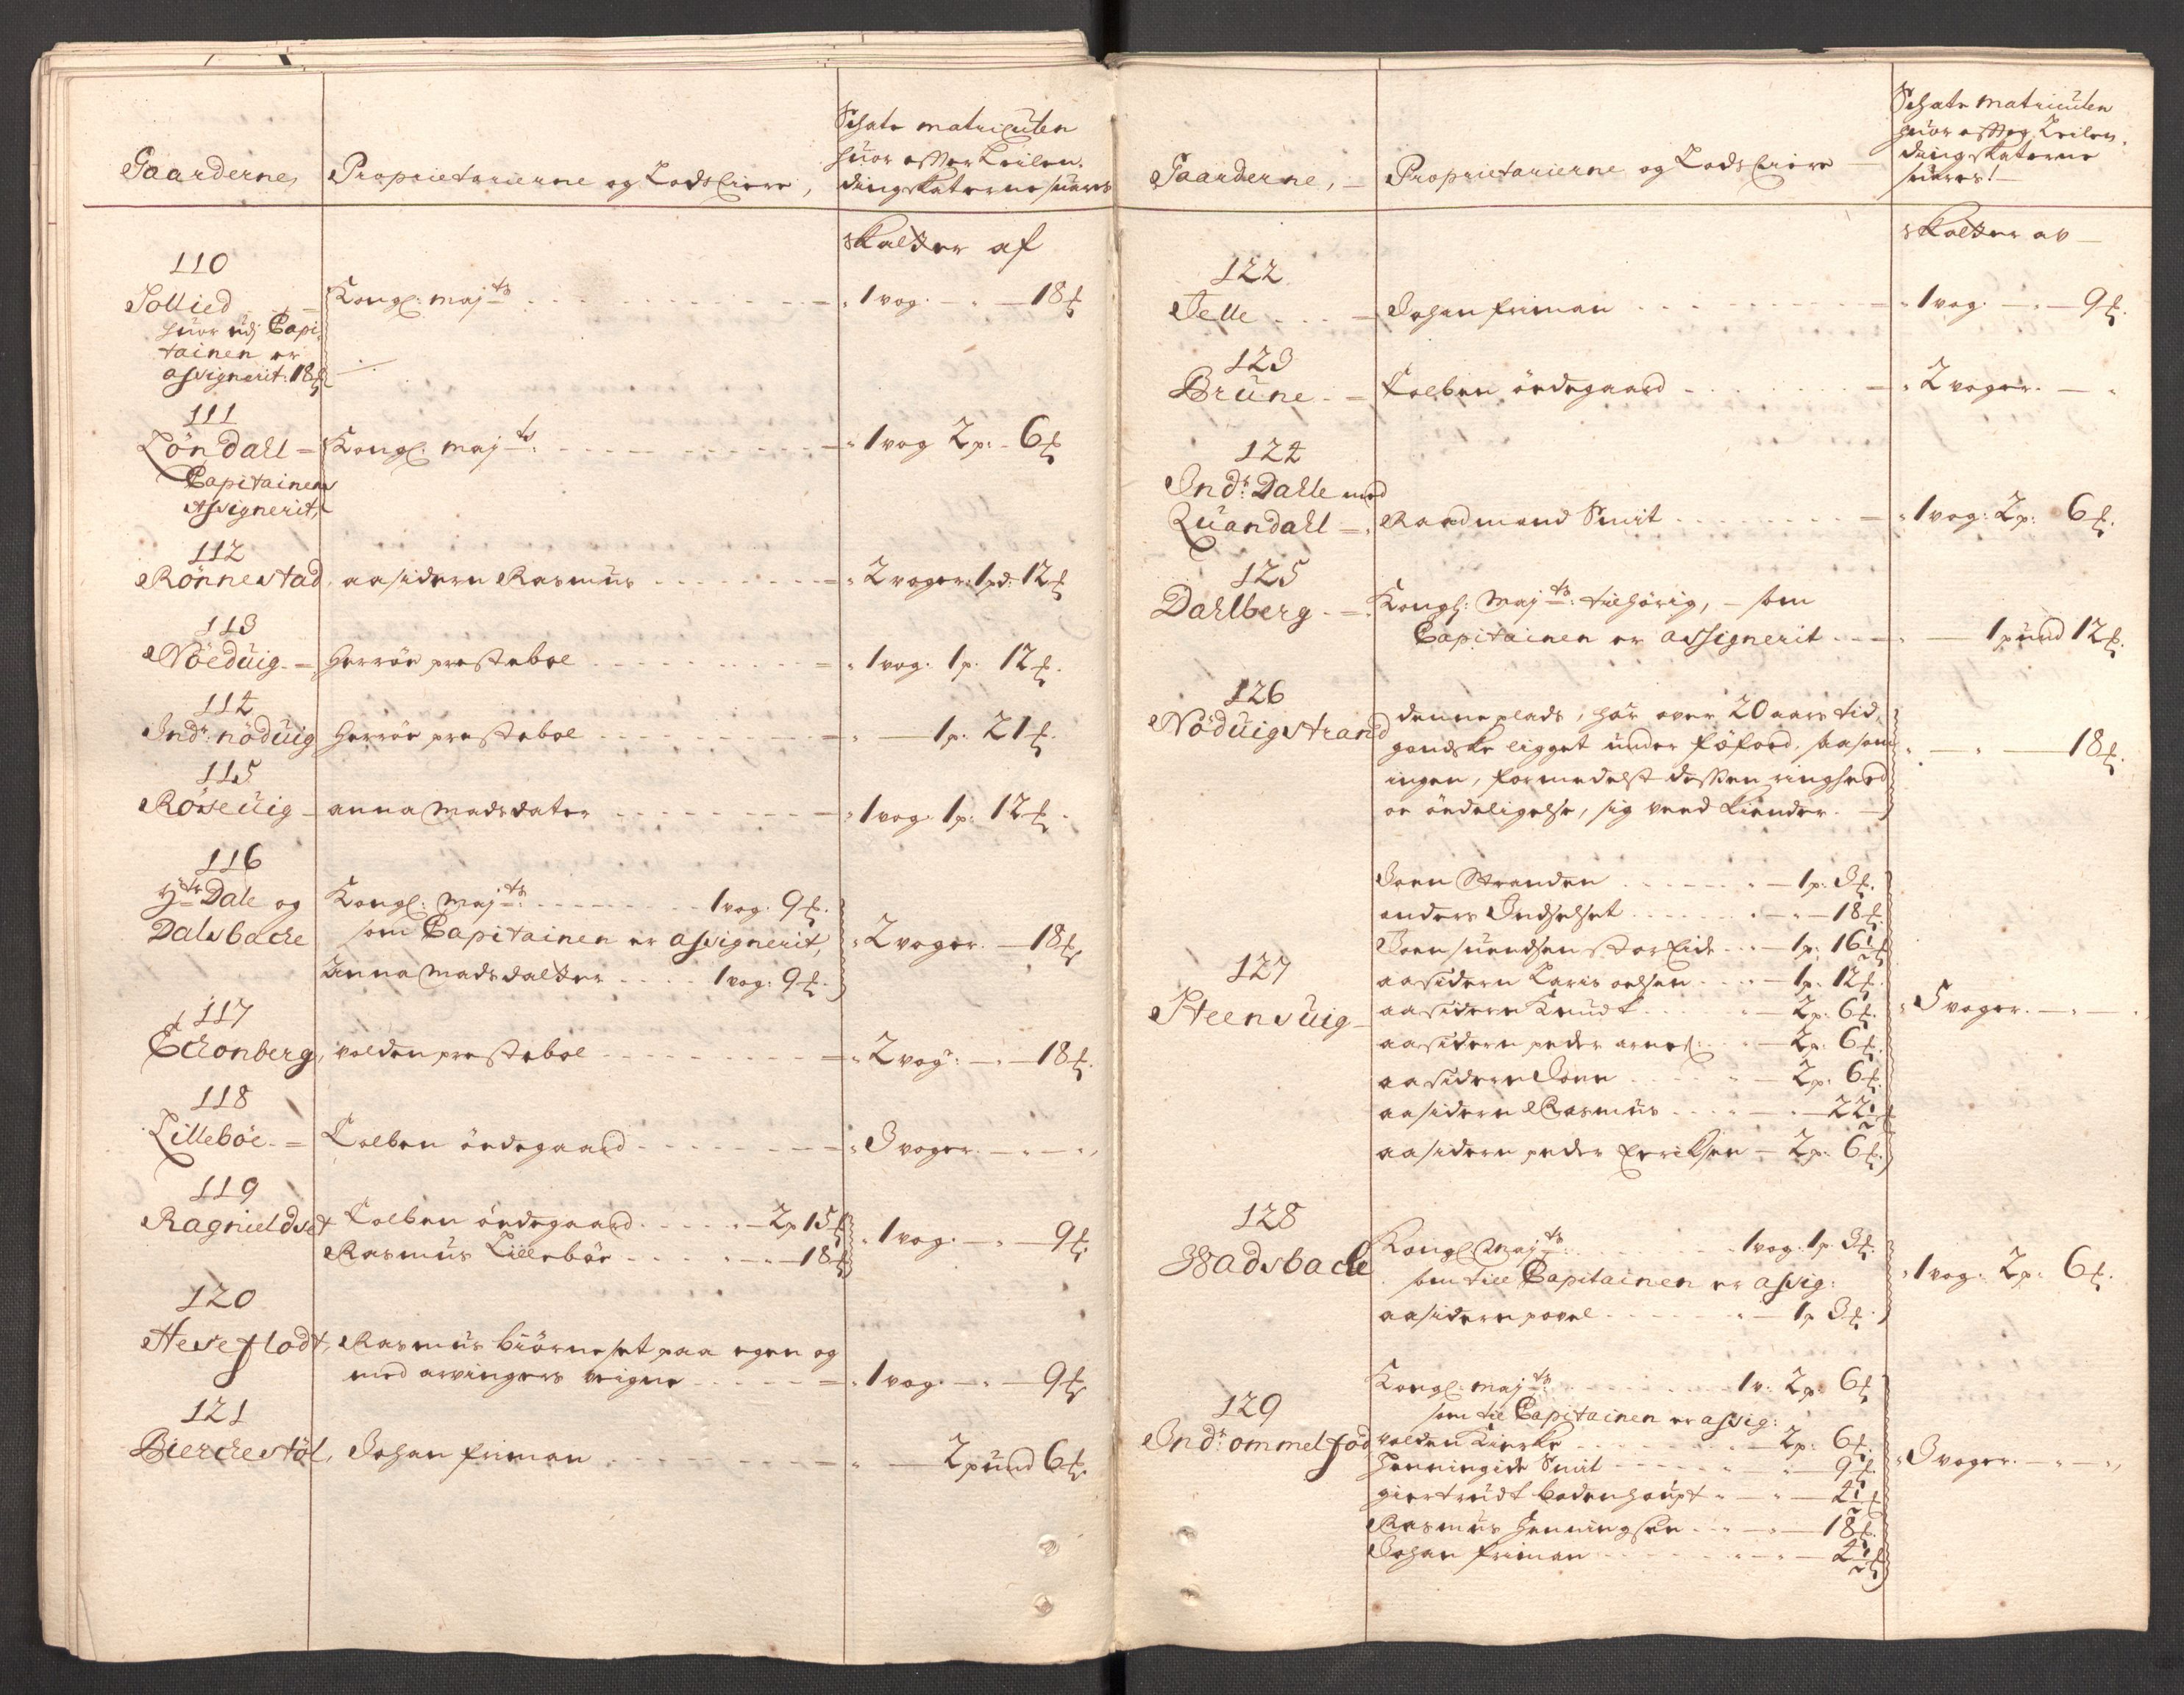 Gaarderne,
Proprietarierne og Lods Eiere,
Schate matriculen
huor effter Leilen-
dings katerne suares
skalter af
110
Sollied
huor udj Capi-
tainen er
assignerit: 18 ℔
Kongl: maj ts
1 vog. - 18 ℔
111
Löndahl
Capitainen
Assignerit,
Kongl: maj ts
1 vog 2 p: 6 ℔
112
Rönnestad
aasidern Rasmus
2 voger: 1 pd: 12 ℔
113
Nöeduig
Herröe prestebol
1 vog. 1 p. 12 ℔
114
Indr: nöduig
Herröe prestebol
1 p. 21 ℔
115
Röseuig
anna Madsdater
1 vog. 1 p. 12 ℔
116
Ytr Dale og
Dalsbache
Kongl: Maj ts: 1 vog. 9 ℔
som Capitainen er assignerit,
Anna Madsdatter 1 vog: 9 ℔
2 voger. 18 ℔
117
Echonberg,
volden prestebol
2 vogr: 18 ℔
118
Lilleböe
Colben öedegaard
3 voger
119
Ragnieldset
Colben öedegaard 2 p 15 ℔
Rasmus Lilleböe 18 ℔
1 vog. 9 ℔
120
Heseflodt,
Rasmus biörneset paa egen og
med arvingers veigne
1 vog. 9 ℔
121
Bierchestöl,
Johan friman
2 pund 6 ℔
Gaarderne,
Proprietarierne og Lods Eiere
Schate matriculen
huor effter Leilen-
dings katerne
suares!
skalter av
122
Telle
Johan friman
1 vog. 9 ℔
123
Brune
Colben öedegaard
2 voger.
124
Indr: Dahle med
Quandahl
Raadmand Smit
1 vog: 2 p: 6 ℔
125
Dahlberg
Kongl: Maj ts: tilhörig, som
Capitainen er assignerit
1 pund 12 ℔
126
Nöduigstrand
denne plads, har over 20 aars tid,
gandske ligget under föefoed, saasom
ingen, formedelst dessen ringhed
oc öedeligelse, sig vved kiender.
18 ℔
127
Steensuig
Joen Stranden 1 p: 3 ℔
anders Indselset 18 ℔
Joen suendsen storEide 1 p: 16½ ℔
aasidern Laris oelsen 1 p. 12 ℔
aasidern Knudt 2 p: 6 ℔
aasidern peder arnes: 2 p: 6 ℔
aasidern Joen 2 p: 6 ℔
aasidern Rasmus 22½ ℔
aasidern peder Erichsen 2 p: 6 ℔
5 voger.
128
Wadsbache
Kongl: Maj ts: 1 vog. 1 p. 3 ℔
som till Capitainen er assig:
aasidern povel 1 p 3 ℔
1 vog. 2 p: 6 ℔
129
Indr: ommelfod
Kongl: maj ts 1 v: 2 p: 6 ℔
som til Capitainen er assig:
volden Kircke 2 p: 6 ℔
Henningide Smit 9 ℔
giertrudt badenhaupt 4½ ℔
Rasmus Henningsen 18 ℔
Johan friman 4½ ℔
3 voger.